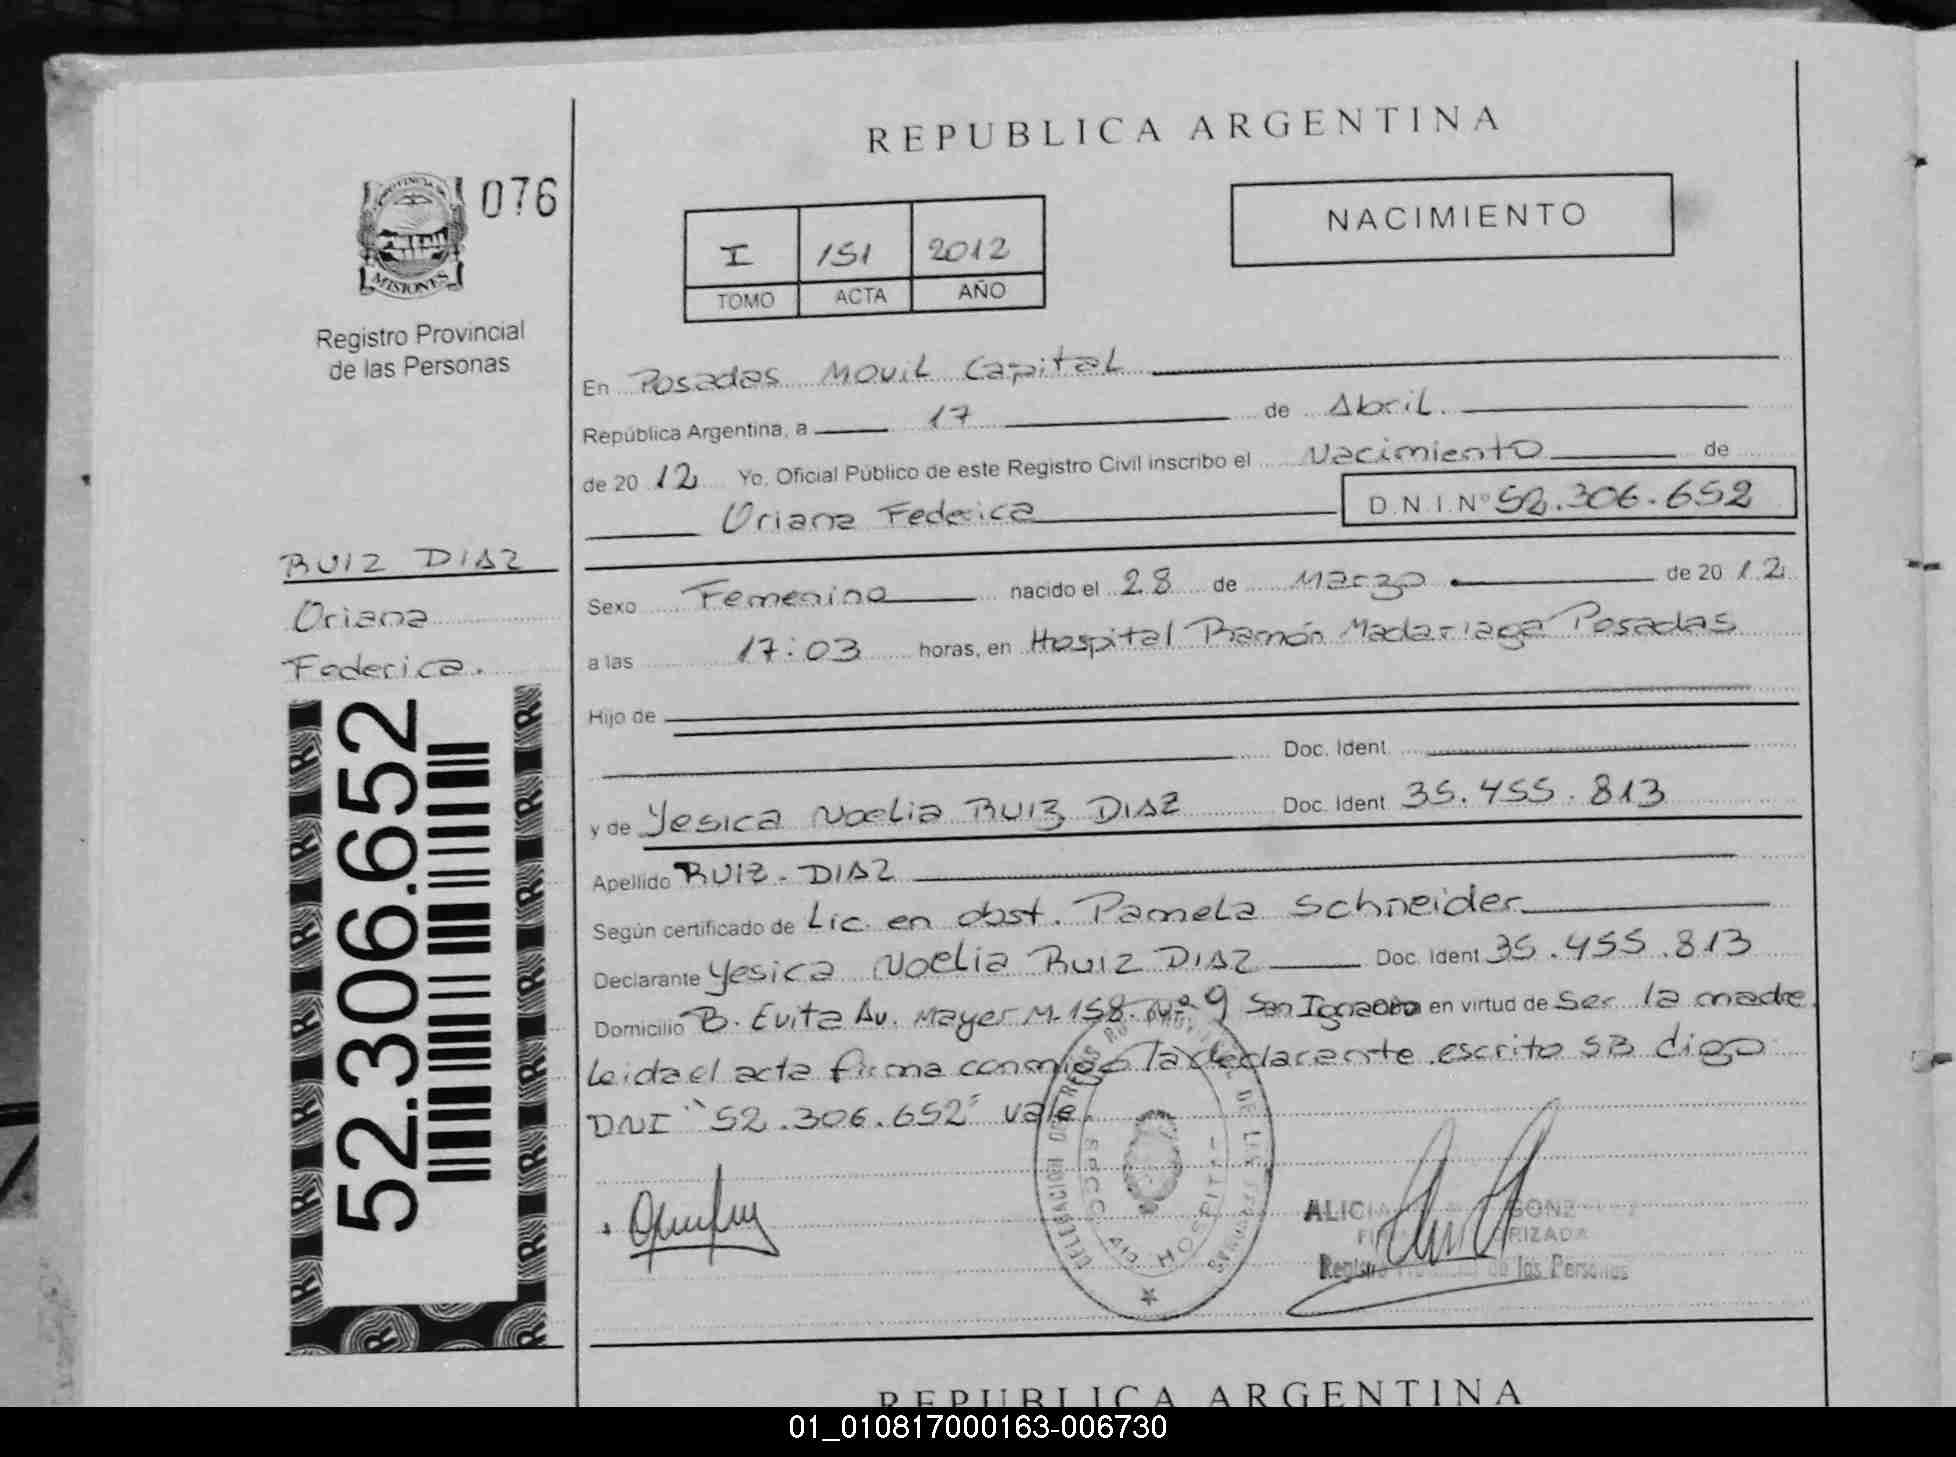 REPUBLICA ARGENTINA
PROVINCIA DE
MISIONES
076
Registro Provincial
de las Personas
I 151 2012
TOMO ACTA AÑO
NACIMIENTO
En Posadas Movil Capital
República Argentina, a 17 de Abril.
de 2012 Yo, Oficial Público de este Registro Civil inscribo el Nacimiento de
Oriana Federica D.N.I.Nº 52.306.652
RUIZ DIAZ
Oriana
Federica.
52.306.652
Sexo Femenino nacido el 28 de Marzo de 2012
a las 17:03 horas, en Hospital Ramón Madariaga Posadas
Hijo de
Doc. Ident.
y de Yesica Noelia RUIZ DIAZ Doc. Ident 35.455.813
Apellido RUIZ - DIAZ
Según certificado de Lic. en obst. Pamela Schneider
Declarante Yesica Noelia RUIZ DIAZ Doc. Ident 35.455.813
Domicilio B. Evita Av. Mayer M-158. Nº 9 San Ignacio en virtud de ser la madre
leida el acta firma conmigo la declarante escrito SB digo
DNI "52.306.652" vale.
HOSPITAL
ALICIA
Registro de las Personas
REPUBLICA ARGENTINA
01_010817000163-006730